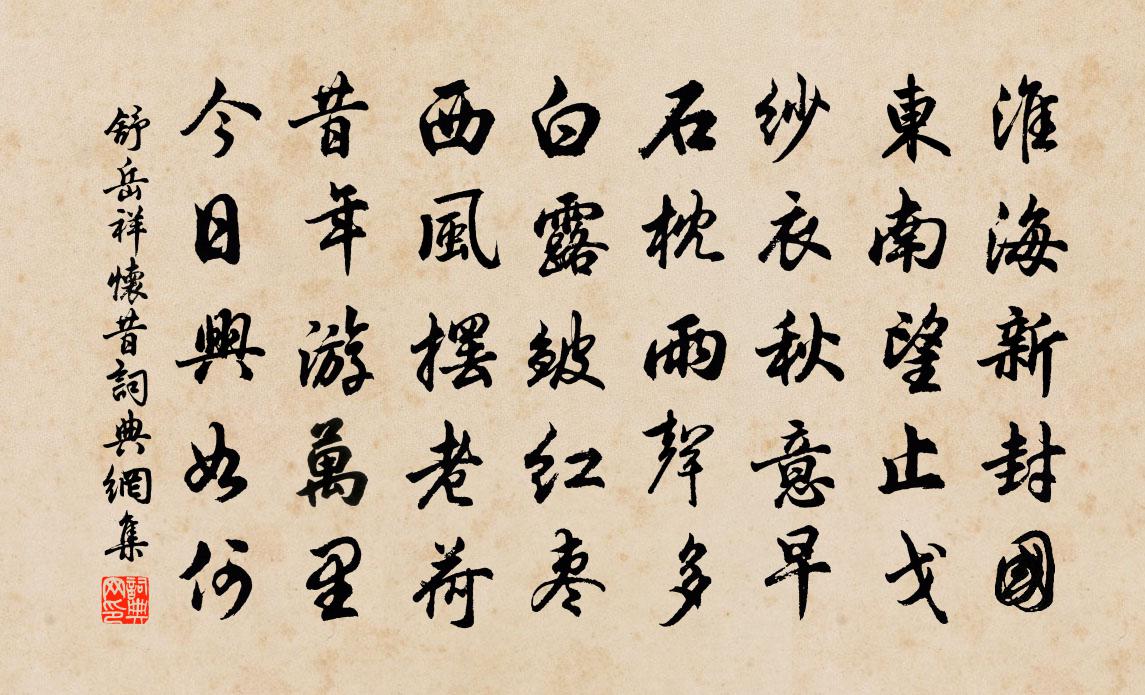 淮海新封國
東南望止戈
紗衣秋意早
石枕雨聲多
白露皴紅棗
西風擺老荷
昔年游萬里
今日興如何
舒岳祥懷昔詞典網集
詞典網印